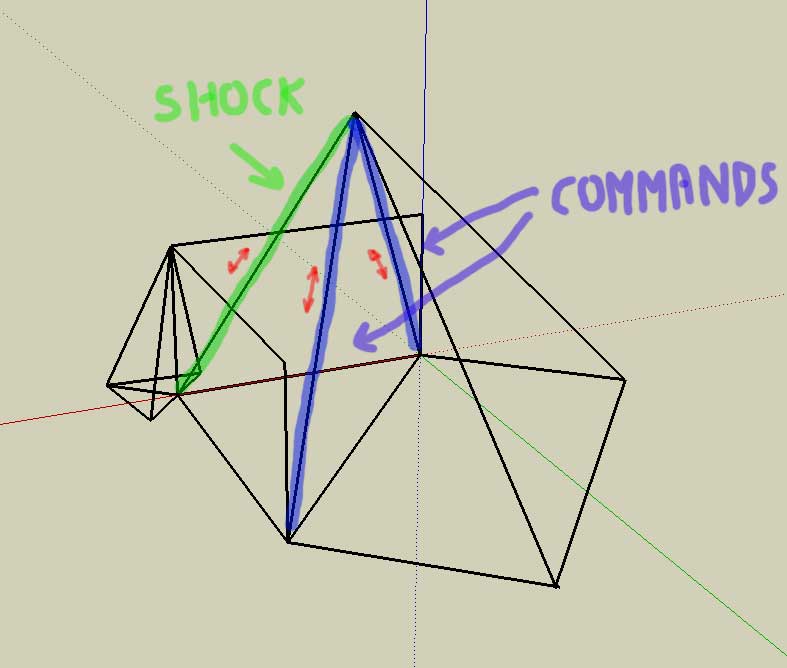 SHOCK
COMMANDS